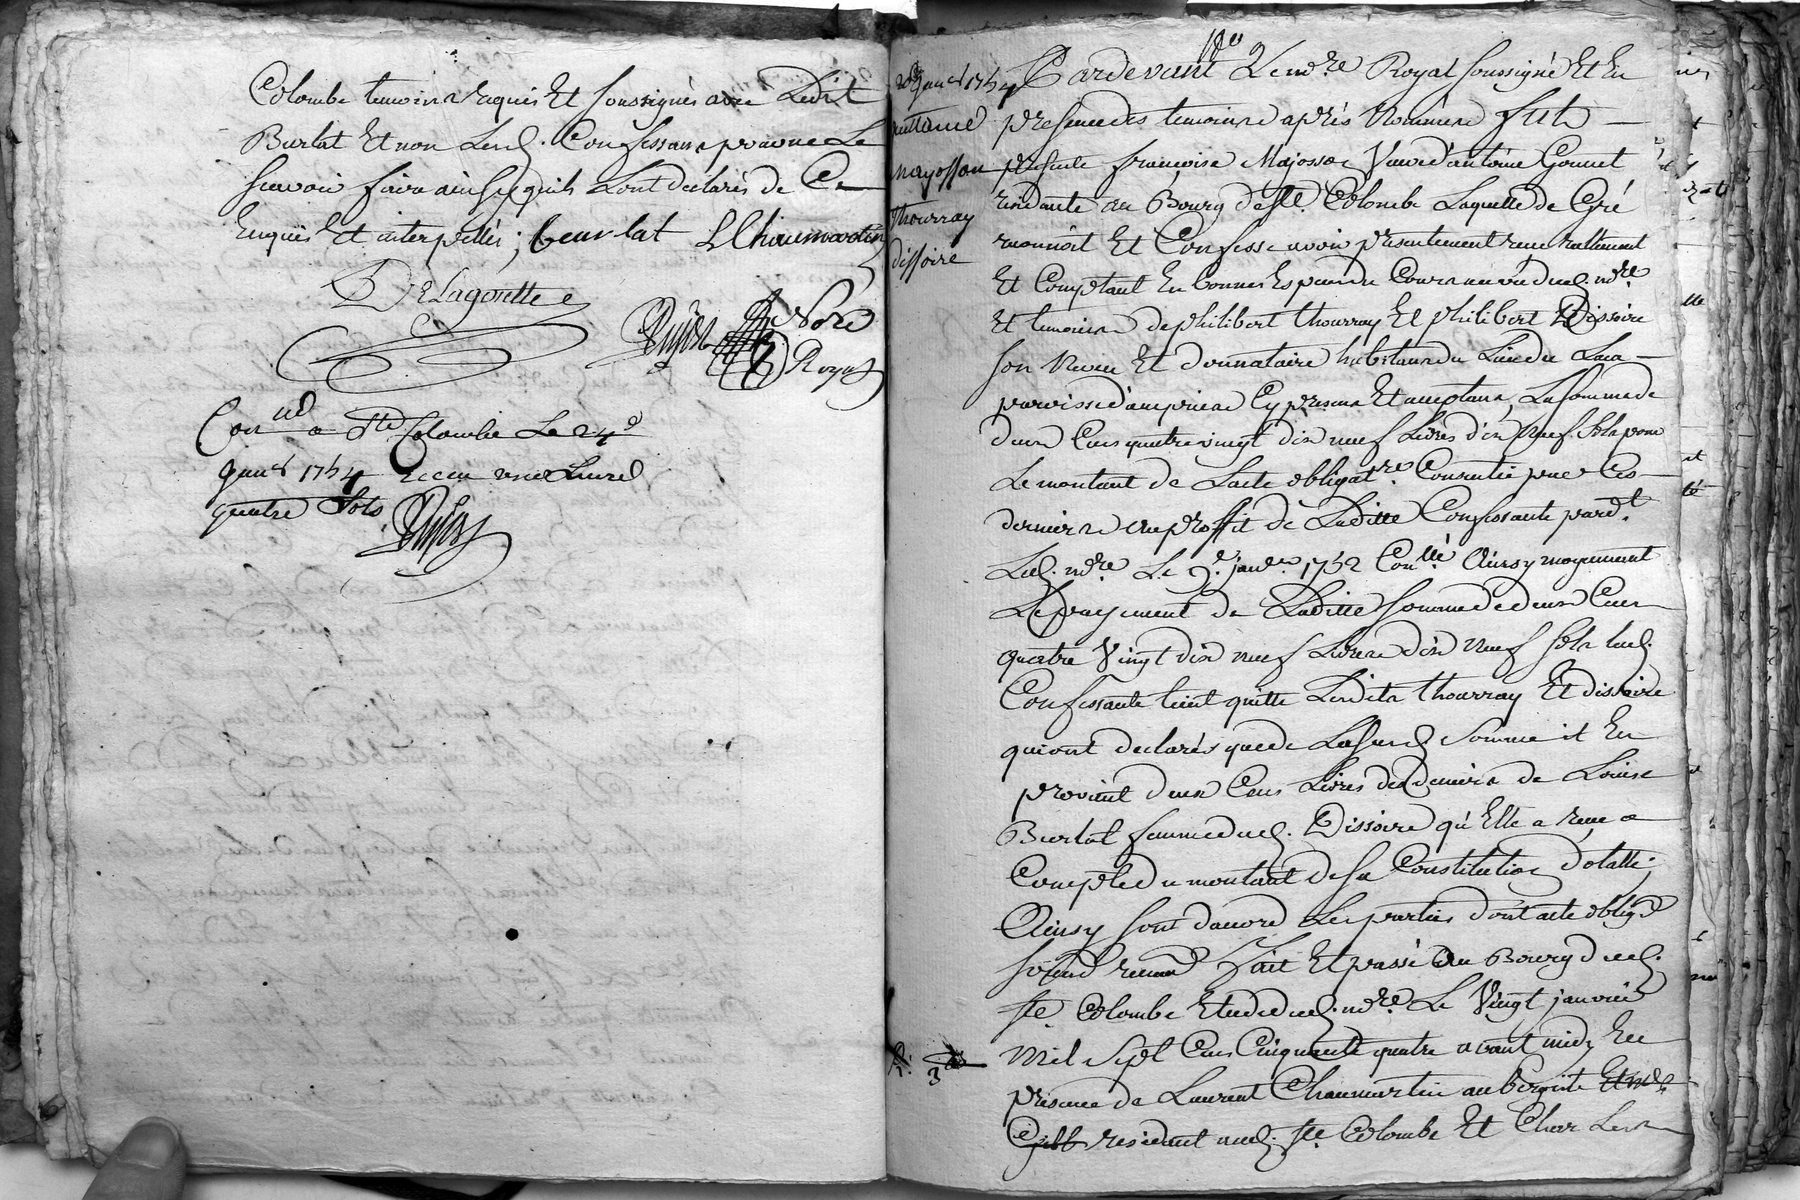 Colombe temoins requis Et soussignés avec Ledit
Burlat Et non Lesd. Confessans pour ne Le
scavoir faire ainsy quils Lont declarés de Ce
Enquis Et interpellés; beurlat LChaumartin
DeLagorette
Dujost Nore
Royal
Con.lé a Ste Colombe Le 24e
janer 1754 Receu une Livre
quatre sols
Dujost
20e janer 1754
quittance
Mayossou
Thourray
dissoire
Pardevant Le nre Royal soussigné Et En
presence des temoins apres Nommés fut
presente françoise Majossou Veuve d'antoine Gonnet
residante au Bourg de Ste Colombe Laquelle de Gré
reconnoit Et Confesse avoir presentement receu reallement
Et Comptant En bonnes Especes du Cours au vû dud. nre
Et temoins de philibert Thourray Et philibert Dissoire
son Neveu Et donnataire habitans du Lieu du
paroisse d'amprine Cy presens Et acceptans, La somme de
deux Cens quatre vingt dix neuf Livres dix neuf sols pour
Le montant de Lacte obligatre Consentie par Ces
derniers au proffit de Laditte Confessante pardt
Led. nre Le 9e janer 1752 Conllé Ainsy moyennant
Le payement de Laditte somme de deux Cens
quatre Vingt dix neuf Livres dix neuf sols Lad.
Confessante tient quitte Lesdits Thourray Et dissoire
qui ont declarés que de La susd. Somme il En
provient deux Cens Livres des deniers de Louise
Burlat femme dud. Dissoire qu'Elle a receu a
Compte du montant de sa Constitution dotalle;
Ainsy sont d'accord Les parties dont acte oblig.
soumd. renond. Fait Et passé Au Bourg dud.
Ste Colombe Etude dud. nre Le Vingt janvier
Mil Sept Cens Cinquante quatre avant midy En
3
presence de Laurent Chaumartin aubergiste
residant aud. Ste Colombe Et Charles